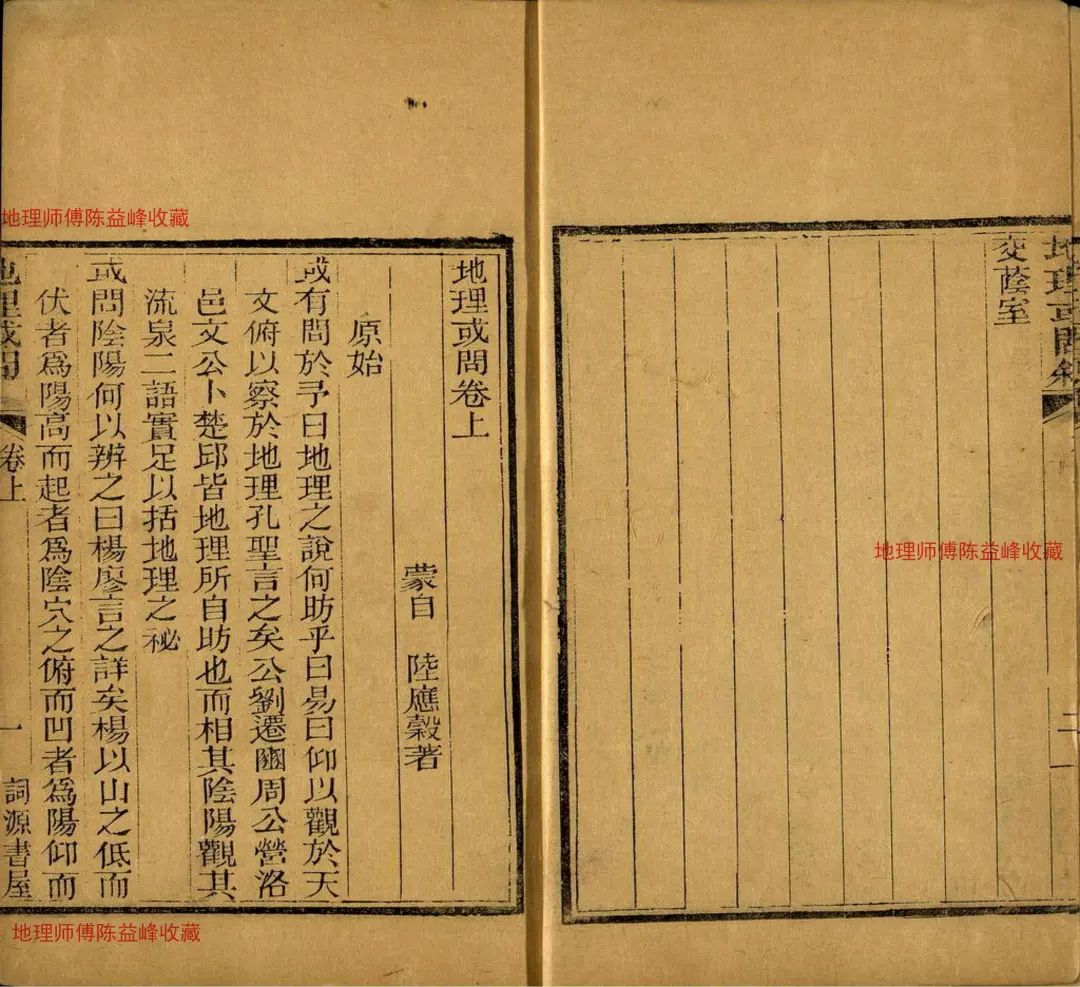 交蔭室
地理或問敘
二
地理或問卷上
蒙自　陸應穀著
原始
或有問於予曰地理之說何昉乎曰易曰仰以觀於天
文俯以察於地理孔聖言之矣公劉遷豳周公營洛
邑文公卜楚邱皆地理所自昉也而相其陰陽觀其
流泉二語實足以括地理之祕
或問陰陽何以辨之曰楊廖言之詳矣楊以山之低而
伏者爲陽高而起者爲陰穴之俯而凹者爲陽仰而
地理或問
卷上
一
詞源書屋
地理师傅陈益峰收藏
地理师傅陈益峰收藏
地理师傅陈益峰收藏